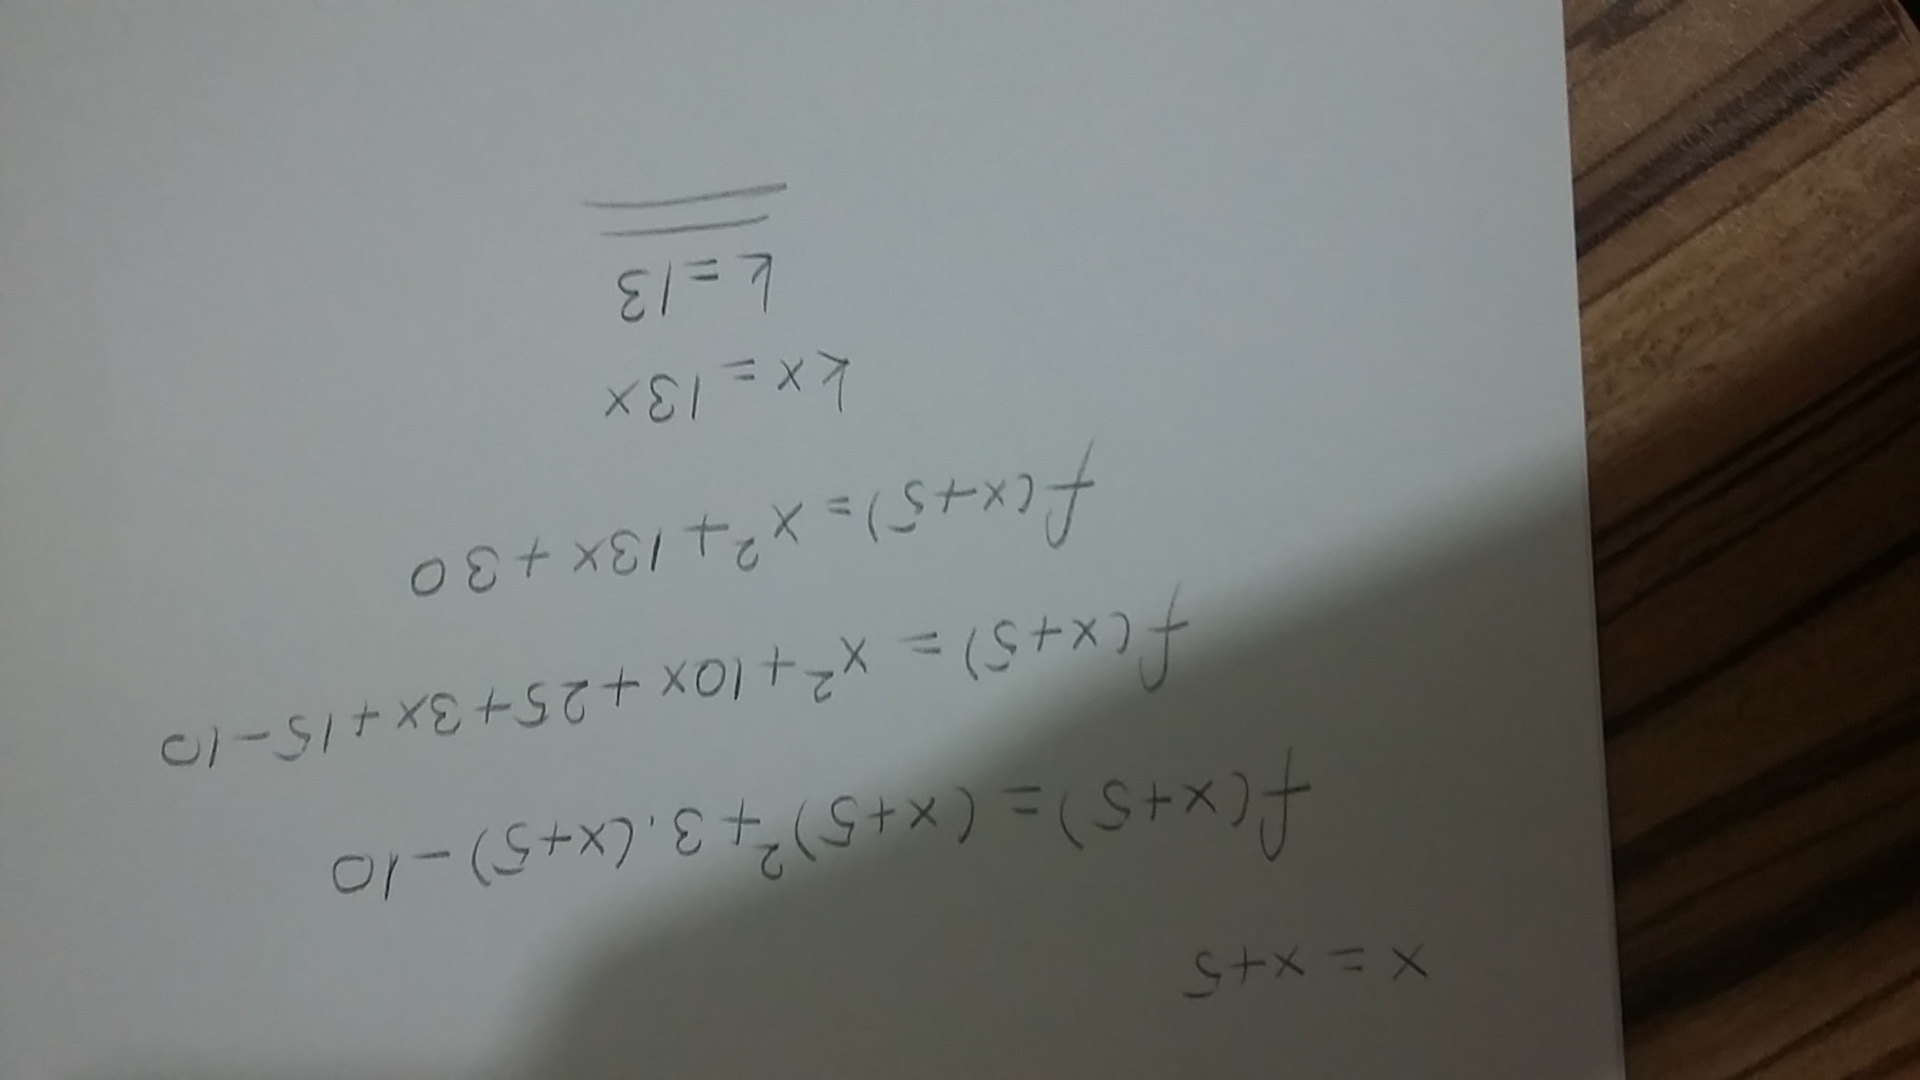 x = x+5
f(x+5) = (x+5)²+3.(x+5)-10
f(x+5) = x²+10x+25+3x+15-10
f(x+5) = x²+13x+30
kx = 13x
k = 13